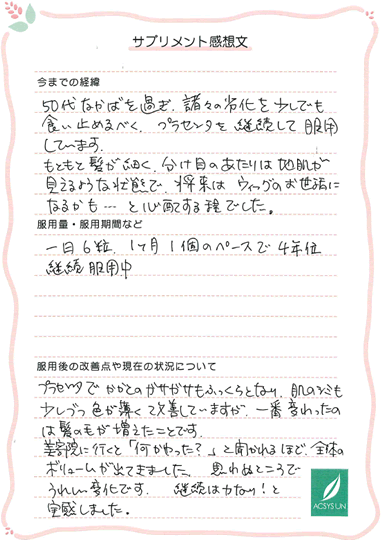 サプリメント感想文
今までの経緯
50代なかばを過ぎ、諸々の劣化を少しでも
食い止めるべく、プラセンタを継続して服用
しています。
もともと髪が細く、分け目のあたりは地肌が
見えるような状態で、将来はウィッグのお世話に
なるかも…と心配する程でした。
服用量・服用期間など
一日6粒、1ヶ月1個のペースで4年位
継続服用中
服用後の改善点や現在の状況について
プラセンタでかかとのガサガサもふっくらとなり、肌のシミも
少しづつ色が薄く改善していますが、一番変わったの
は髪の毛が増えたことです。
美容院に行くと「何かやった?」と聞かれるほど、全体の
ボリュームが出てきました。思わぬところで
うれしい変化です。継続は力なり!と
実感しました。
ACSYSUN